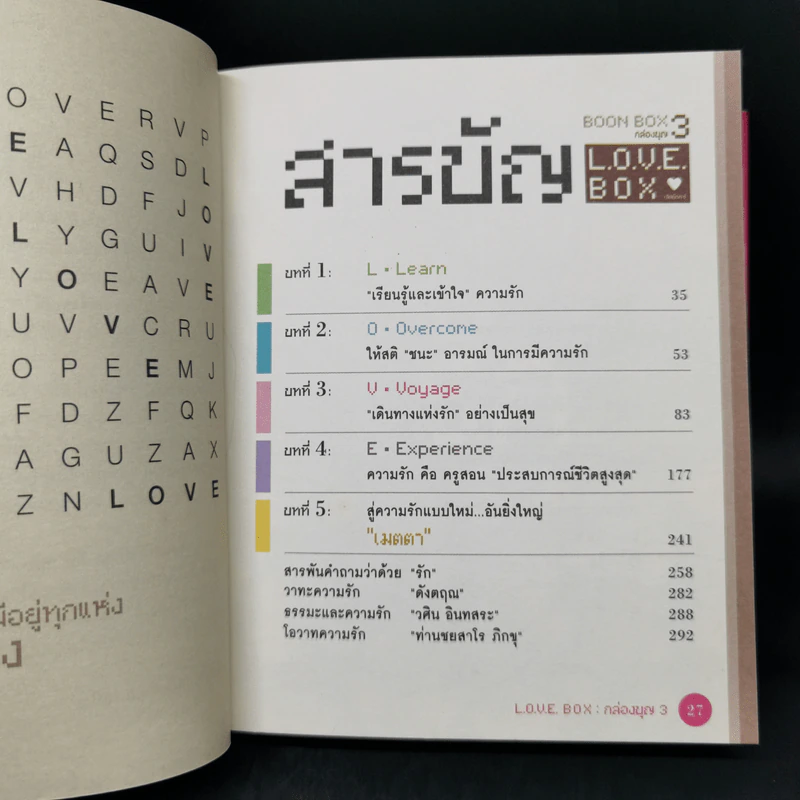 O V E R V P
E A Q S D L
V H D F J O
L Y G U I V
Y O E A V E
U V V C R U
O P E E M J
F D Z F Q K
A G U Z A X
Z N L O V E
มีอยู่ทุกแห่ง
สารบัญ
BOON BOX 3
กล่องบุญ
L.O.V.E.
BOX
บทที่ 1: L • Learn
"เรียนรู้และเข้าใจ" ความรัก 35
บทที่ 2: O • Overcome
ให้สติ "ชนะ" อารมณ์ ในการมีความรัก 53
บทที่ 3: V • Voyage
"เดินทางแห่งรัก" อย่างเป็นสุข 83
บทที่ 4: E • Experience
ความรัก คือ ครูสอน "ประสบการณ์ชีวิตสูงสุด" 177
บทที่ 5: สู่ความรักแบบใหม่...อันยิ่งใหญ่
"เมตตา" 241
สารพันคำถามว่าด้วย "รัก" 258
วาทะความรัก "ดังตฤณ" 282
ธรรมะและความรัก "วศิน อินทสระ" 288
โอวาทความรัก "ท่านชยสาโร ภิกขุ" 292
L.O.V.E. BOX : กล่องบุญ 3 27